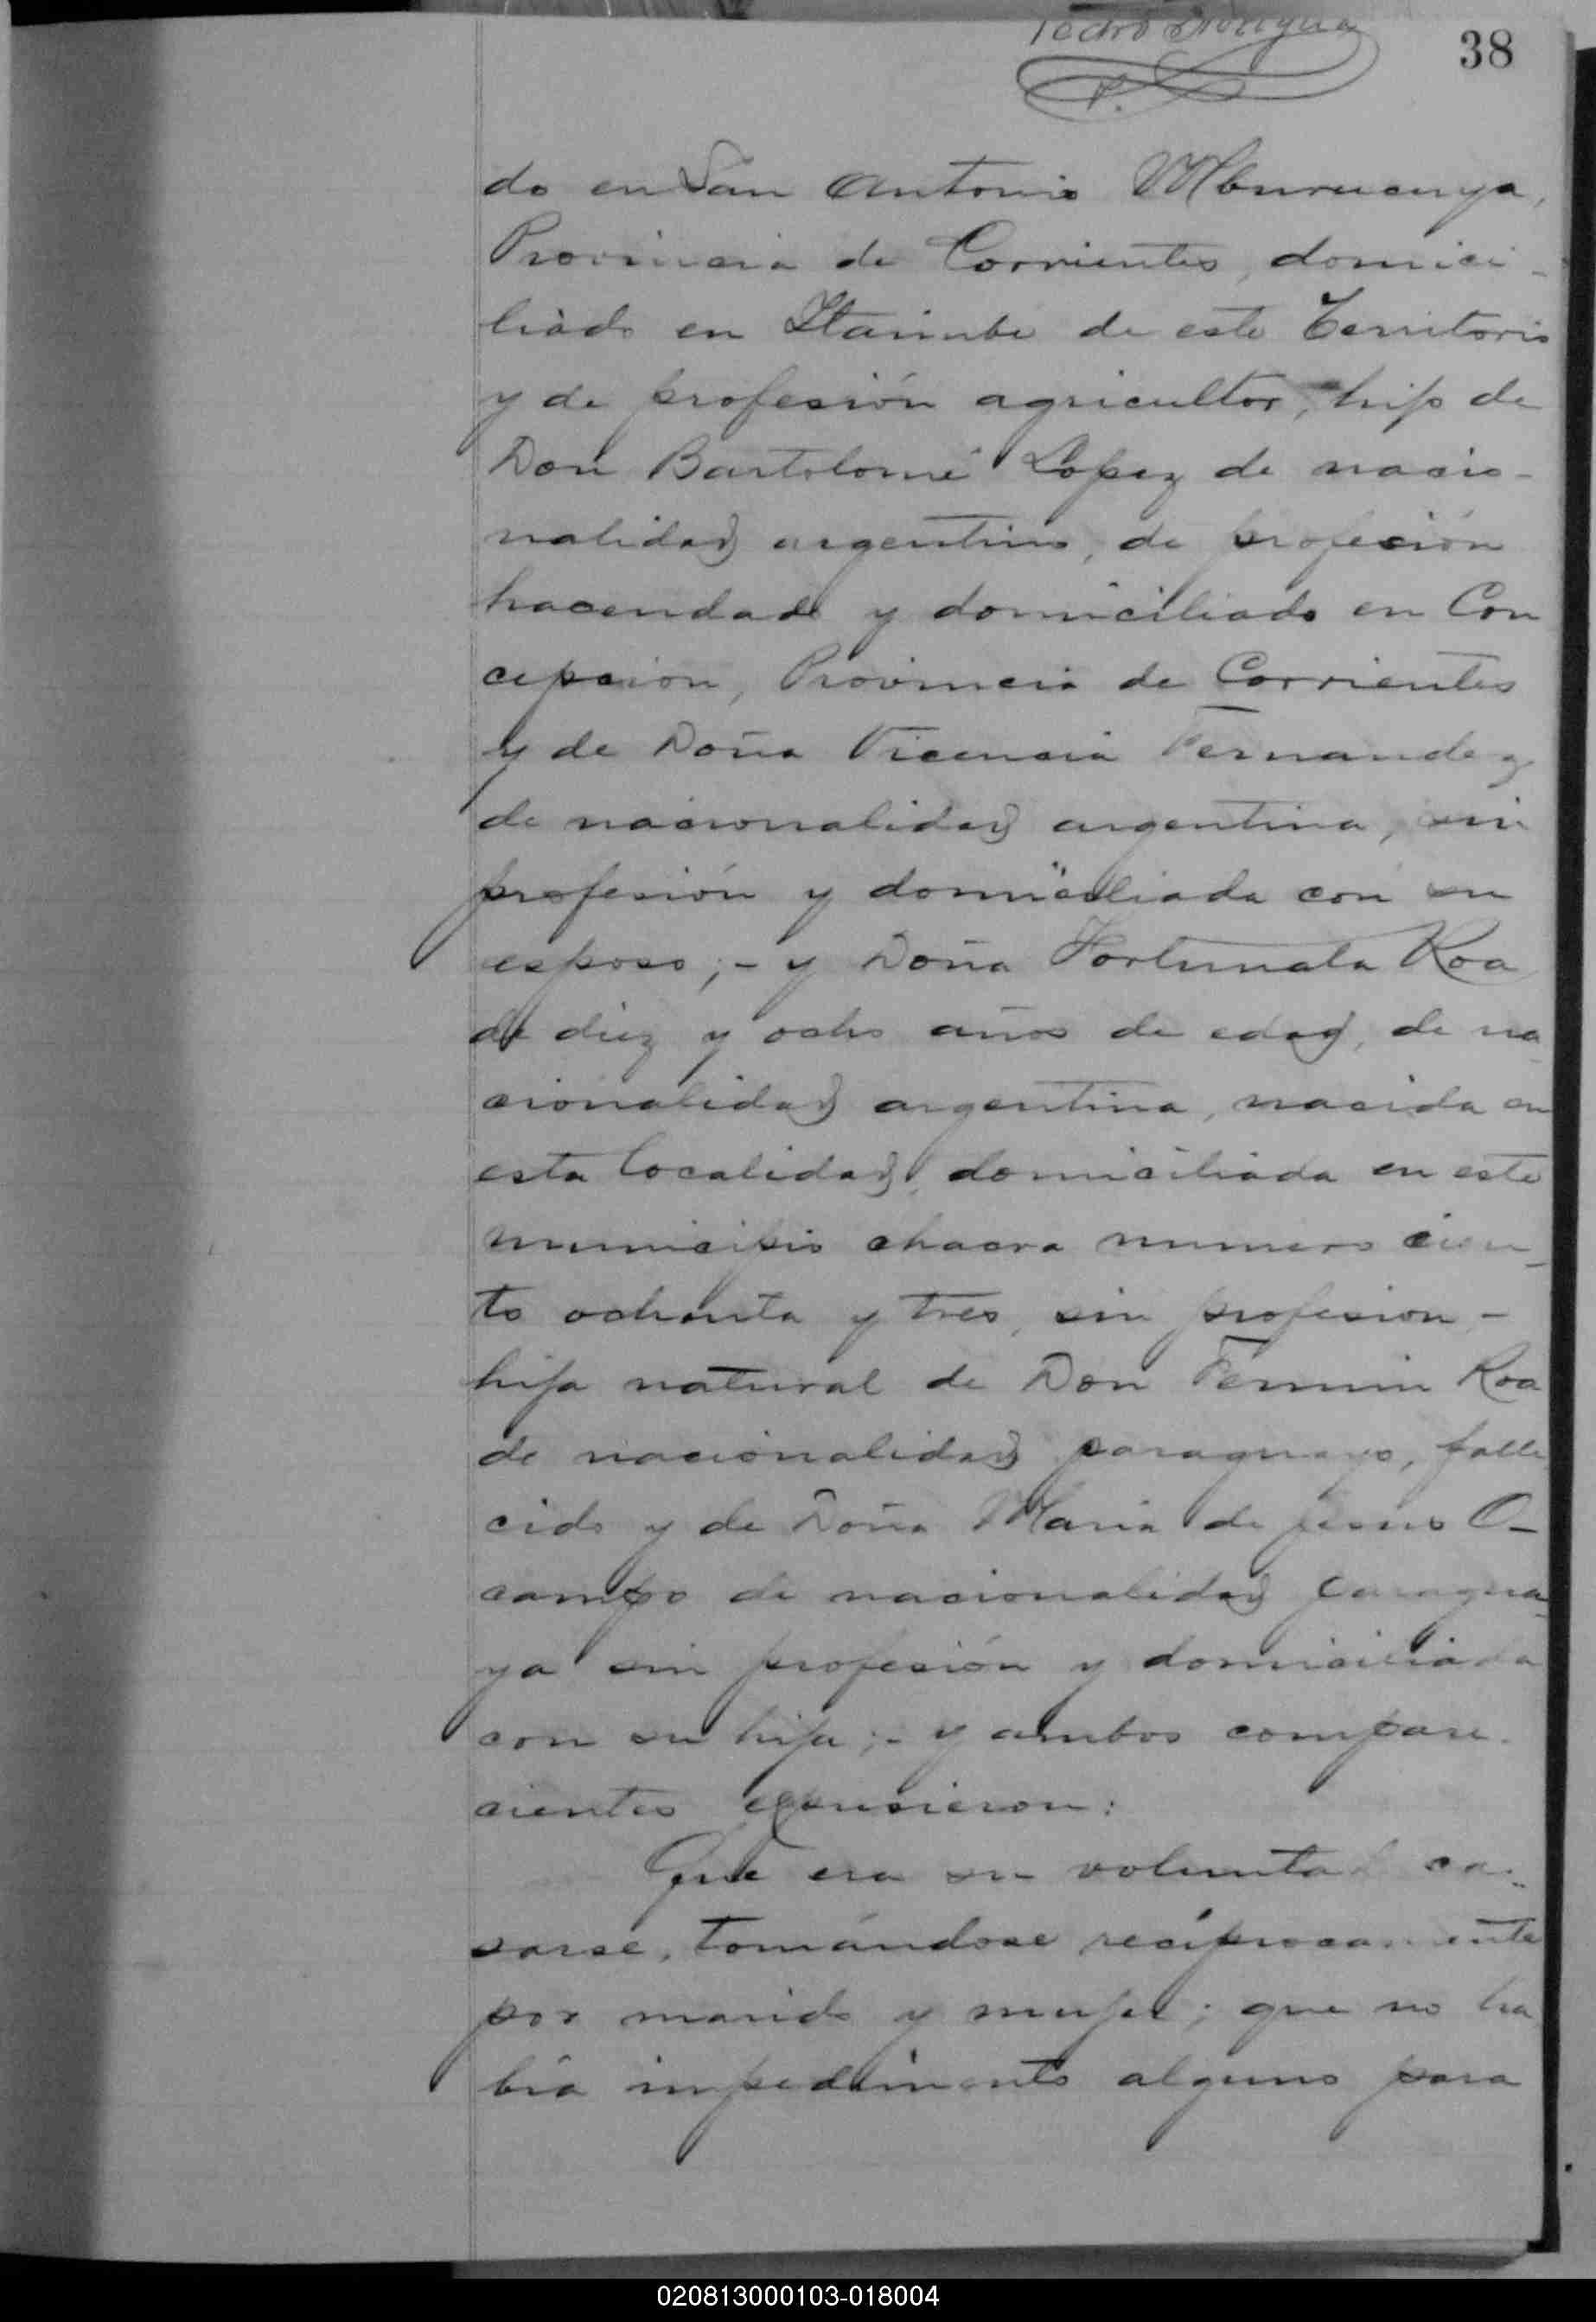 Pedro
38
do en San Antonio Mburucuya,
Provincia de Corrientes, domici-
liado en Itaimbe de este Territorio
y de profesión agricultor, hijo de
Don Bartolomé Lopez de nacio-
nalidad argentino, de profesión
hacendado y domiciliado en Con
cepcion, Provincia de Corrientes
y de Doña Vicencia Fernandez
de nacionalidad argentina, sin
profesión y domiciliada con su
esposo;- y Doña Fortunata Roa
de diez y ocho años de edad, de na
cionalidad argentina, nacida en
esta localidad, domiciliada en este
municipio chacra numero cien-
to ochenta y tres, sin profesion -
hija natural de Don Fermin Roa
de nacionalidad paraguayo, falle
cido y de Doña Maria de Jesus O-
campo de nacionalidad paragua-
ya sin profesión y domiciliada
con su hija;- y ambos compare-
cientes expusieron:
Que era su voluntad ca-
sarse, tomándose recíprocamente
por marido y mujer; que no ha
bía impedimento alguno para
020813000103-018004